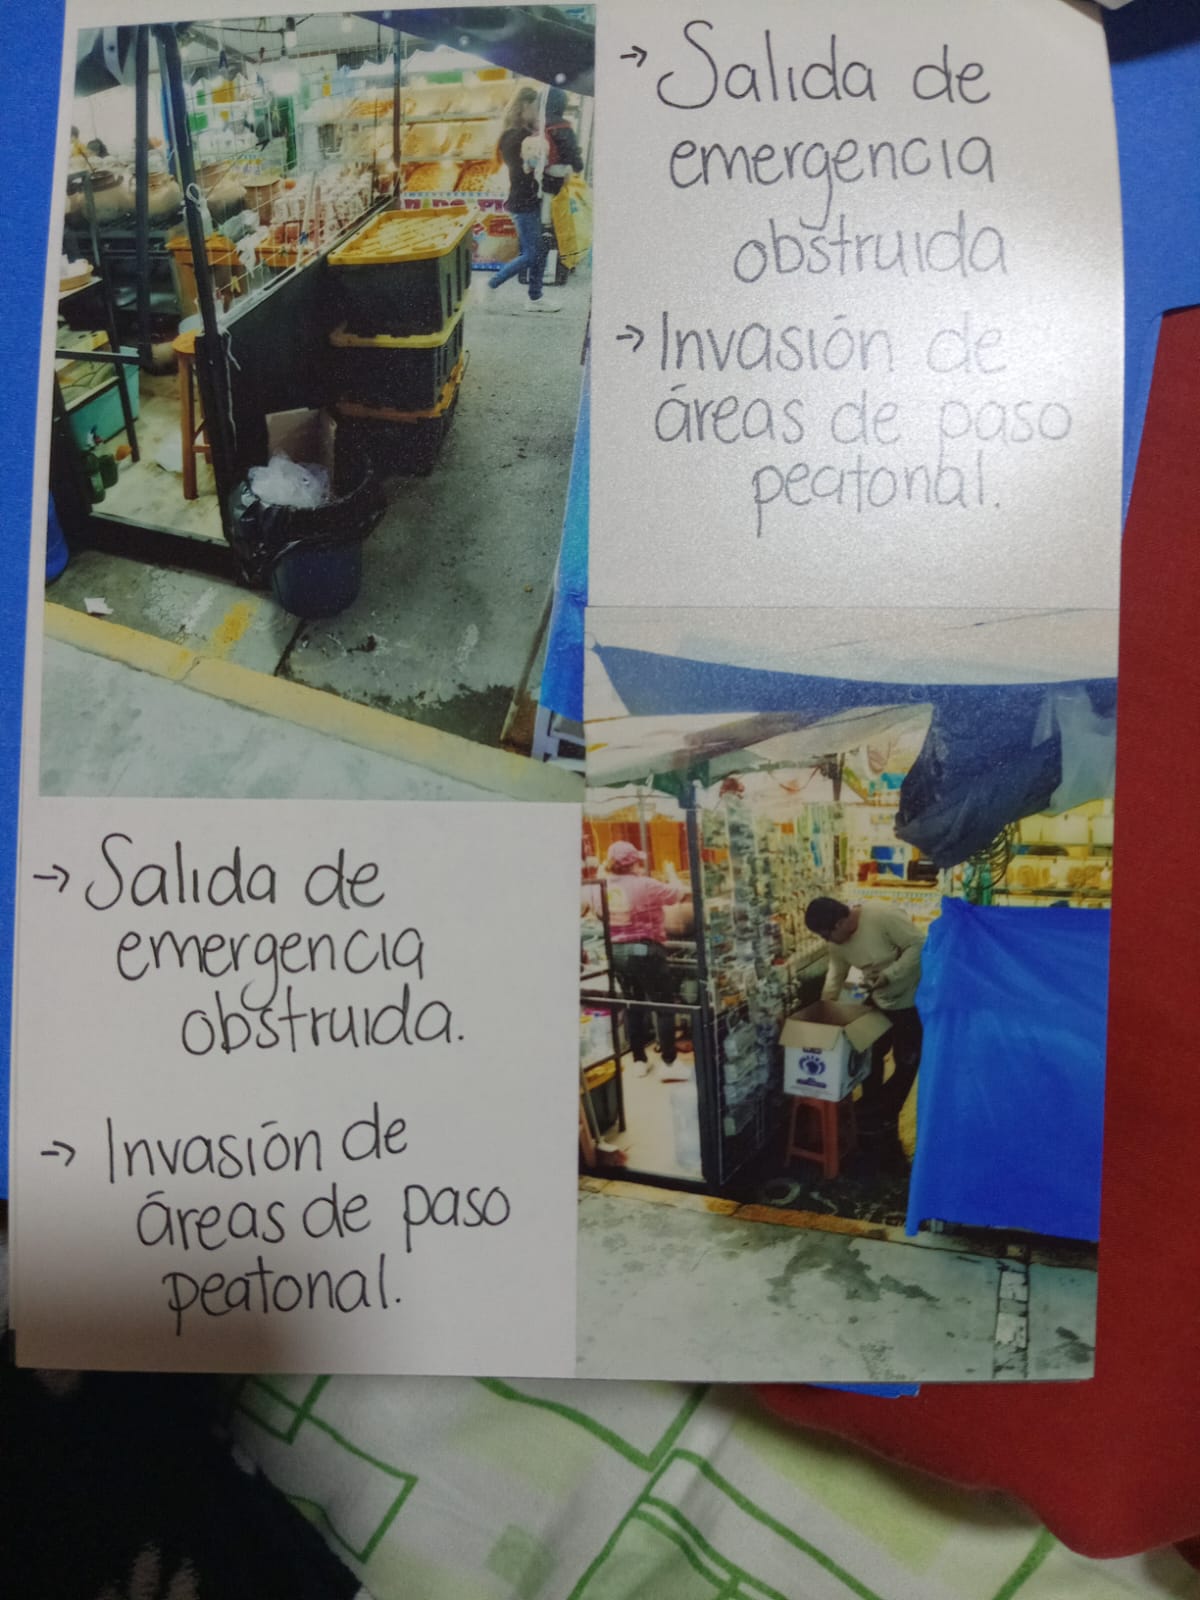 → Salida de
emergencia
obstruida
→ Invasión de
áreas de paso
peatonal.
→ Salida de
emergencia
obstruida.
→ Invasión de
áreas de paso
peatonal.